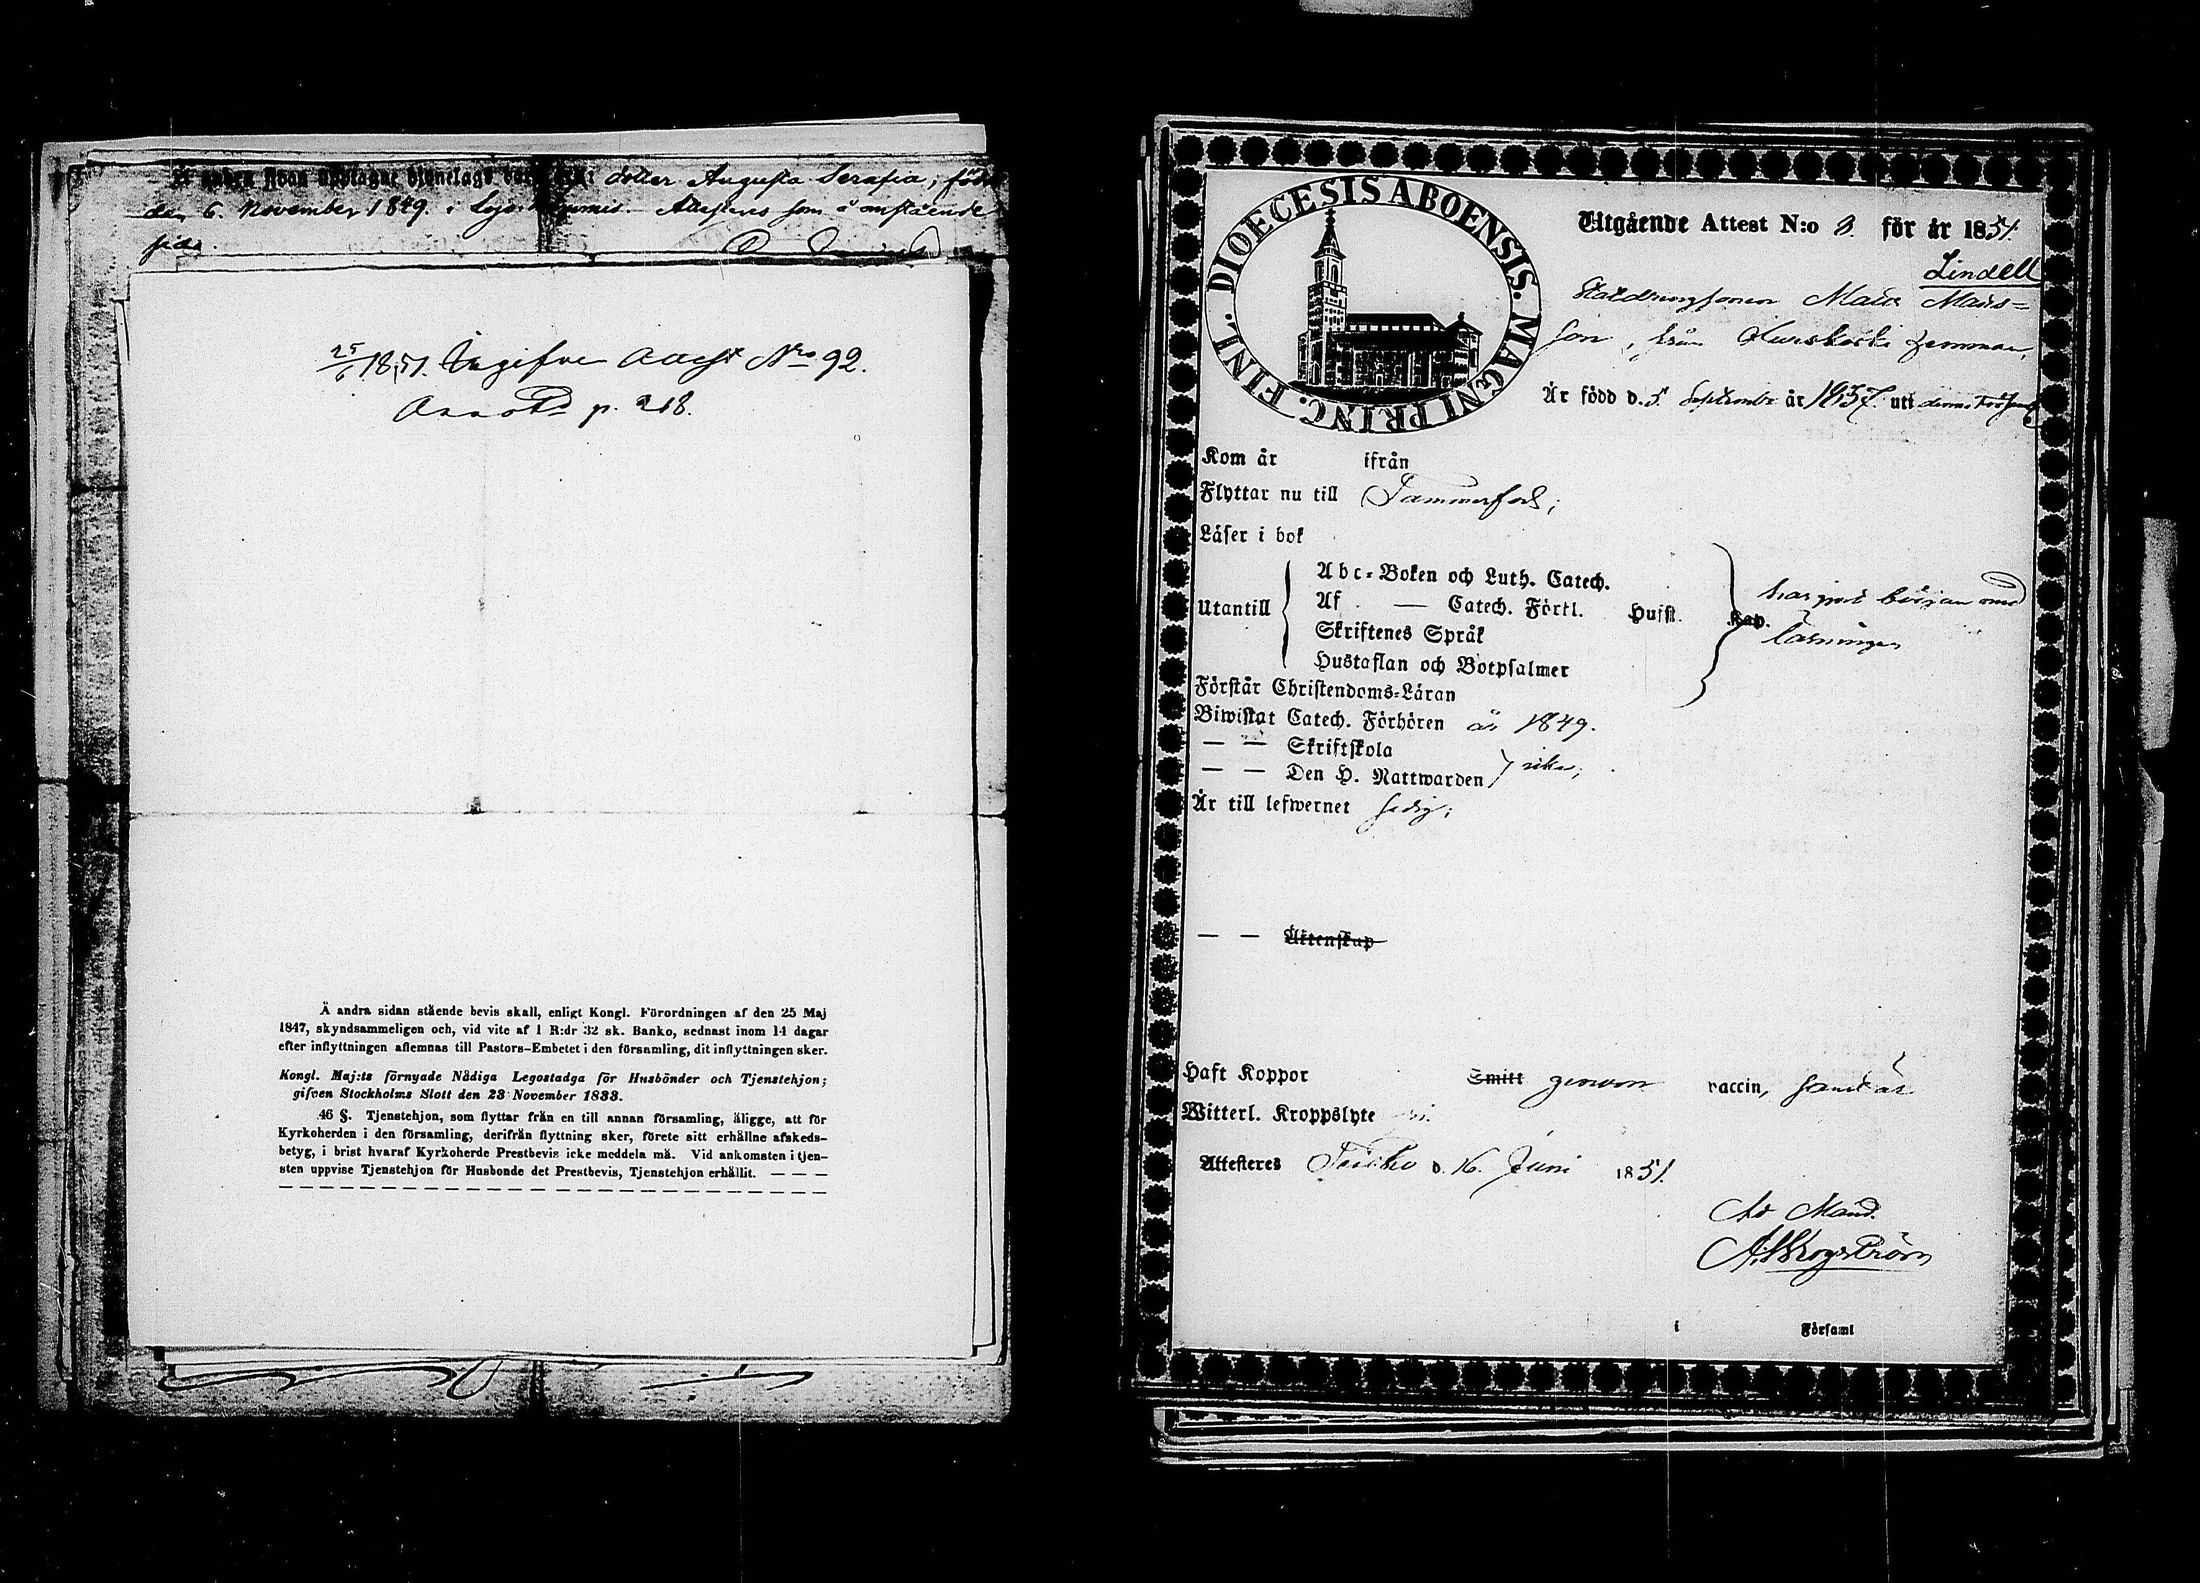 dotter Augusta Serafia; född
den 6. November 1849. i Lojo Attesteras som å omstående
sida.
25/6 1851. Ingifven Attest Nro 92.
p. 218.
Å andra sidan stående bevis skall, enligt Kongl. Förordningen af den 25 Maj
1847, skyndsammeligen och, vid vite af 1 R:dr 32 sk. Banko, sednast inom 14 dagar
efter inflyttningen aflemnas till Pastors-Embetet i den församling, dit inflyttningen sker.
Kongl. Maj:ts förnyade Nådiga Legostadga för Husbönder och Tjenstehjon;
gifven Stockholms Slott den 23 November 1833.
46 §. Tjenstehjon, som flyttar från en till annan församling, åligge, att för
Kyrkoherden i den församling, derifrån flyttning sker, förete sitt erhållne afskeds-
betyg, i brist hvaraf Kyrkoherde Prestbevis icke meddela må. Vid ankomsten i tjen-
sten uppvise Tjenstehjon för Husbonde det Prestbevis, Tjenstehjon erhållit. — — —
DIOECESIS ABOENSIS. MAGNI PRINC. FINL.
Utgående Attest N:o 3. för år 1851.
Lindell
Mats Mats-
son, från
Är född d. 5. September år 1837. uti denna
Kom år ifrån
Flyttar nu till Tammerfors;
Läser i bok
Utantill
Abc-Boken och Luth. Catech.
Af — Catech. Förkl. Hufst. Kap.
Skriftenes Språk
Hustaflan och Botpsalmer
har just börjat med
läsningen
Förstår Christendoms-Läran
Biwistat Catech. Förhören år 1849.
— — Skriftskola
— — Den H. Nattwarden icke;
Är till lefwernet sedig;
— — Äktenskap
Haft Koppor Smitt genom vaccin, samt är
Witterl. Kroppslyte fri.
Attesteres d. 16. Juni 1851.
Ad Mand.
i Församl